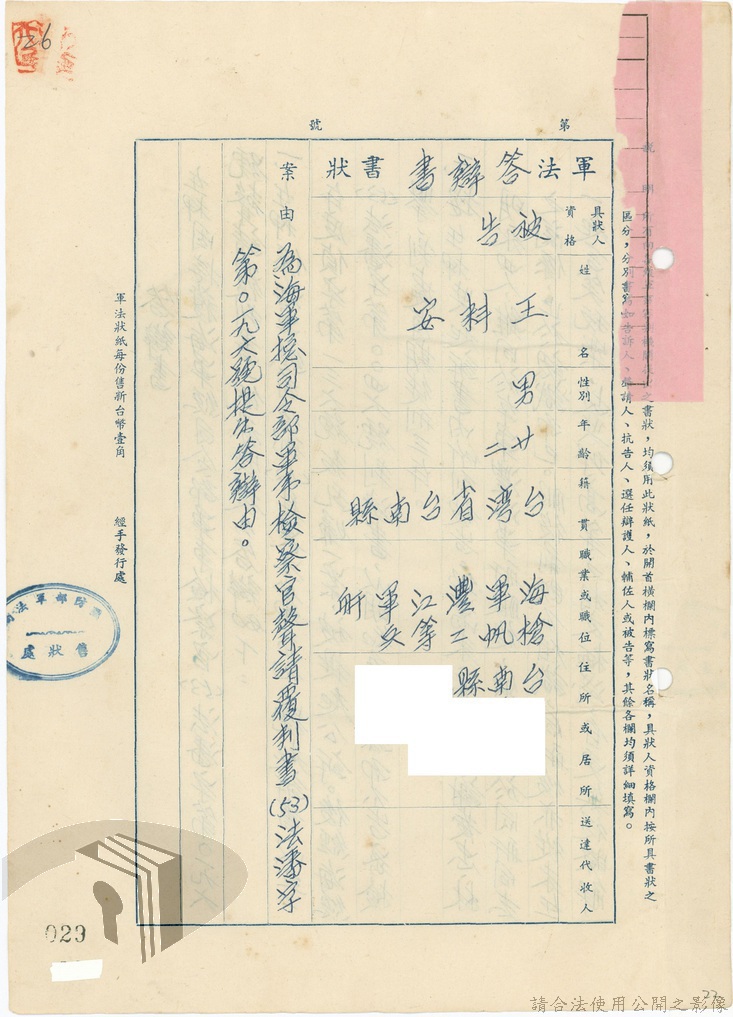 26
第　號
軍法答辯書書狀
具狀人資格
被告
姓名
王料安
性別
男
年齡
廿二
籍貫
台湾省台南縣
職業或職位
海軍灃江軍
槍帆二等
住所或居所
台南縣
送達代收人
案由
為海軍総司令部軍事檢察官聲請覆判書(53)法潘字
第〇一九六號提出答辯由。
之書狀，均須用此狀紙，於開首橫欄內標寫書狀名稱，具狀人資格欄內按所具書狀之
區分，分別書寫如告訴人、聲請人、抗告人、選任辯護人、輔佐人或被告等，其餘各欄均須詳細填寫。
軍法狀紙每份售新台幣壹角
經手發行處
國防部軍法局
售狀處
029
請合法使用公開之影像